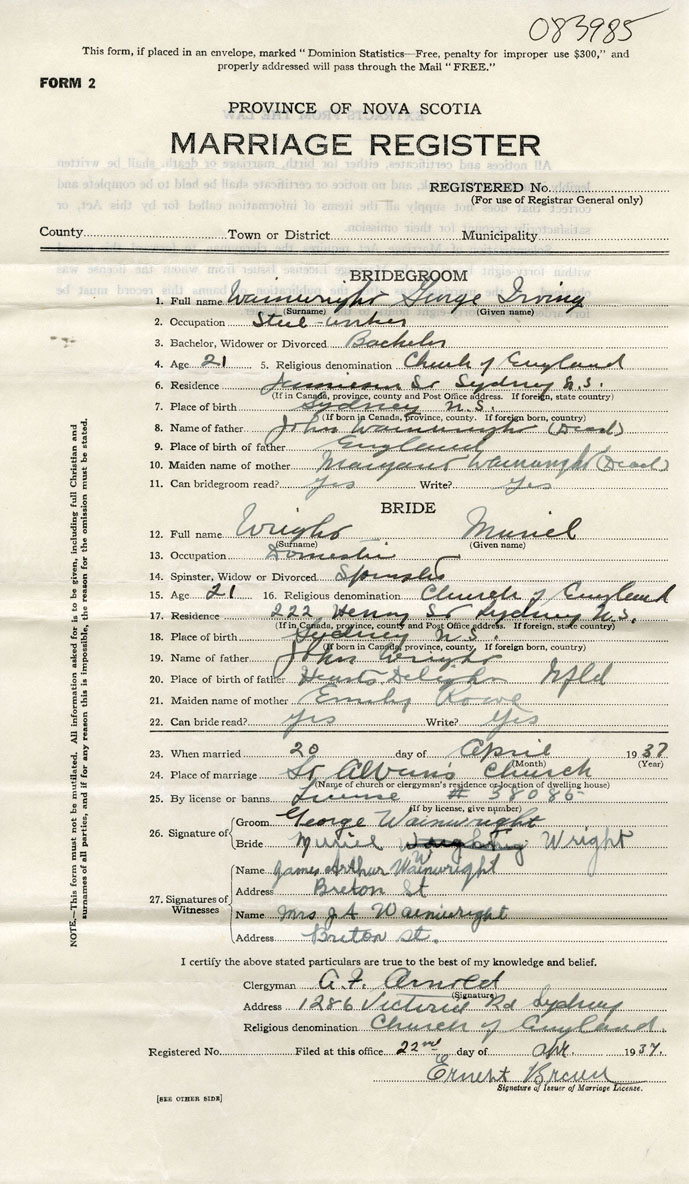 083985
This form, if placed in an envelope, marked "Dominion Statistics—Free, penalty for improper use $300," and
properly addressed will pass through the Mail "FREE."
FORM 2
PROVINCE OF NOVA SCOTIA
MARRIAGE REGISTER
REGISTERED No.
(For use of Registrar General only)
County Town or District Municipality
BRIDEGROOM
1. Full name Wainwright George Irving
(Surname) (Given name)
2. Occupation Steel-worker
3. Bachelor, Widower or Divorced Bachelor
4. Age 21 5. Religious denomination Church of England
6. Residence Jamieson St Sydney N.S.
(If in Canada, province, county and Post Office address. If foreign, state country)
7. Place of birth Sydney N.S.
(If born in Canada, province, county. If foreign born, country)
8. Name of father John Wainwright (Dead)
9. Place of birth of father England
10. Maiden name of mother Margaret Wainwright (Dead)
11. Can bridegroom read? Yes Write? Yes
BRIDE
12. Full name Wright Muriel
(Surname) (Given name)
13. Occupation Domestic
14. Spinster, Widow or Divorced Spinster
15. Age 21 16. Religious denomination Church of England
17. Residence 222 Henry St Sydney N.S.
(If in Canada, province, county and Post Office address. If foreign, state country)
18. Place of birth Sydney N.S.
(If born in Canada, province, county. If foreign born, country)
19. Name of father John Wright
20. Place of birth of father Hearts Delight Nfld
21. Maiden name of mother Emily Rowe
22. Can bride read? Yes Write? Yes
23. When married 20 day of April 1937
(Month) (Year)
24. Place of marriage St Alban's Church
(Name of church or clergyman's residence or location of dwelling house)
25. By license or banns License # 38085
(If by license, give number)
26. Signature of Groom George Wainwright
Bride Muriel Wright
27. Signatures of Witnesses
Name James Arthur Wainwright
Address Breton St
Name Mrs J A Wainwright
Address Breton St.
I certify the above stated particulars are true to the best of my knowledge and belief.
Clergyman A. F. Arnold
(Signature)
Address 1286 Victoria Rd Sydney
Religious denomination Church of England
Registered No. Filed at this office 22nd day of Apr. 1937.
Ernest Brown
Signature of Issuer of Marriage License.
[SEE OTHER SIDE]
NOTE.—This form must not be mutilated. All information asked for is to be given, including full Christian and
surnames of all parties, and if for any reason this is impossible, the reason for the omission must be stated.